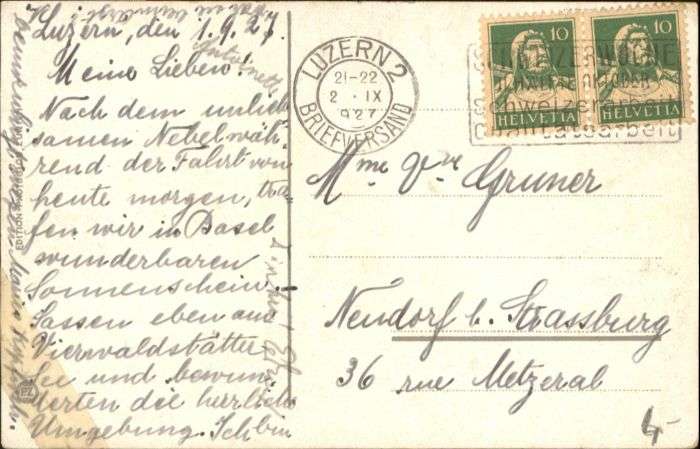 Luzern, den 1.9.27.
Meine Lieben!
Nach dem unlieb
samen Nebel wäh
rend der Fahrt von
heute morgen, tra
fen wir in Basel
wunderbaren
Sonnenschein.
Sassen eben am
Vierwaldstätter
See und bewun
derten die herrliche
Umgebung. Ich bin
EDITION
LUZERN 2
21-22
2. IX
1927
BRIEFVERSAND
10
HELVETIA
10
HELVETIA
SCHWEIZERWOCHE
schweizerarbeit
qualitätsarbeit
Mme Vve Gruner
Neudorf b. Strassburg
36 rue Metzeral
4.-